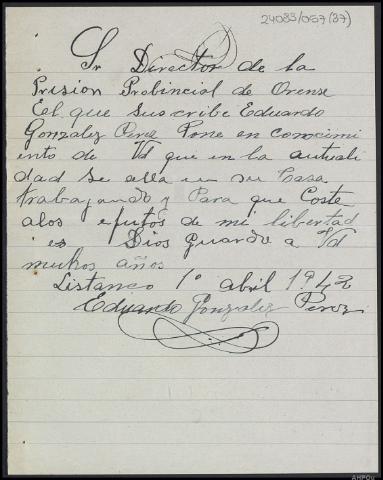 24083/057 (37)
Sr Director de la
Prision Probincial de Orense
Eel que suscribe Eduardo
Gonzalez Perez Pone en conocimi
ento de Vd que en la autuali
dad se alla en su Casa
trabayando y Para que Coste
alos efutos de mi libertad
es Dios guarde a Vd
muchos años
Listanco 1º abril 1942
Eduardo Gonzalez Perez
AHPOu